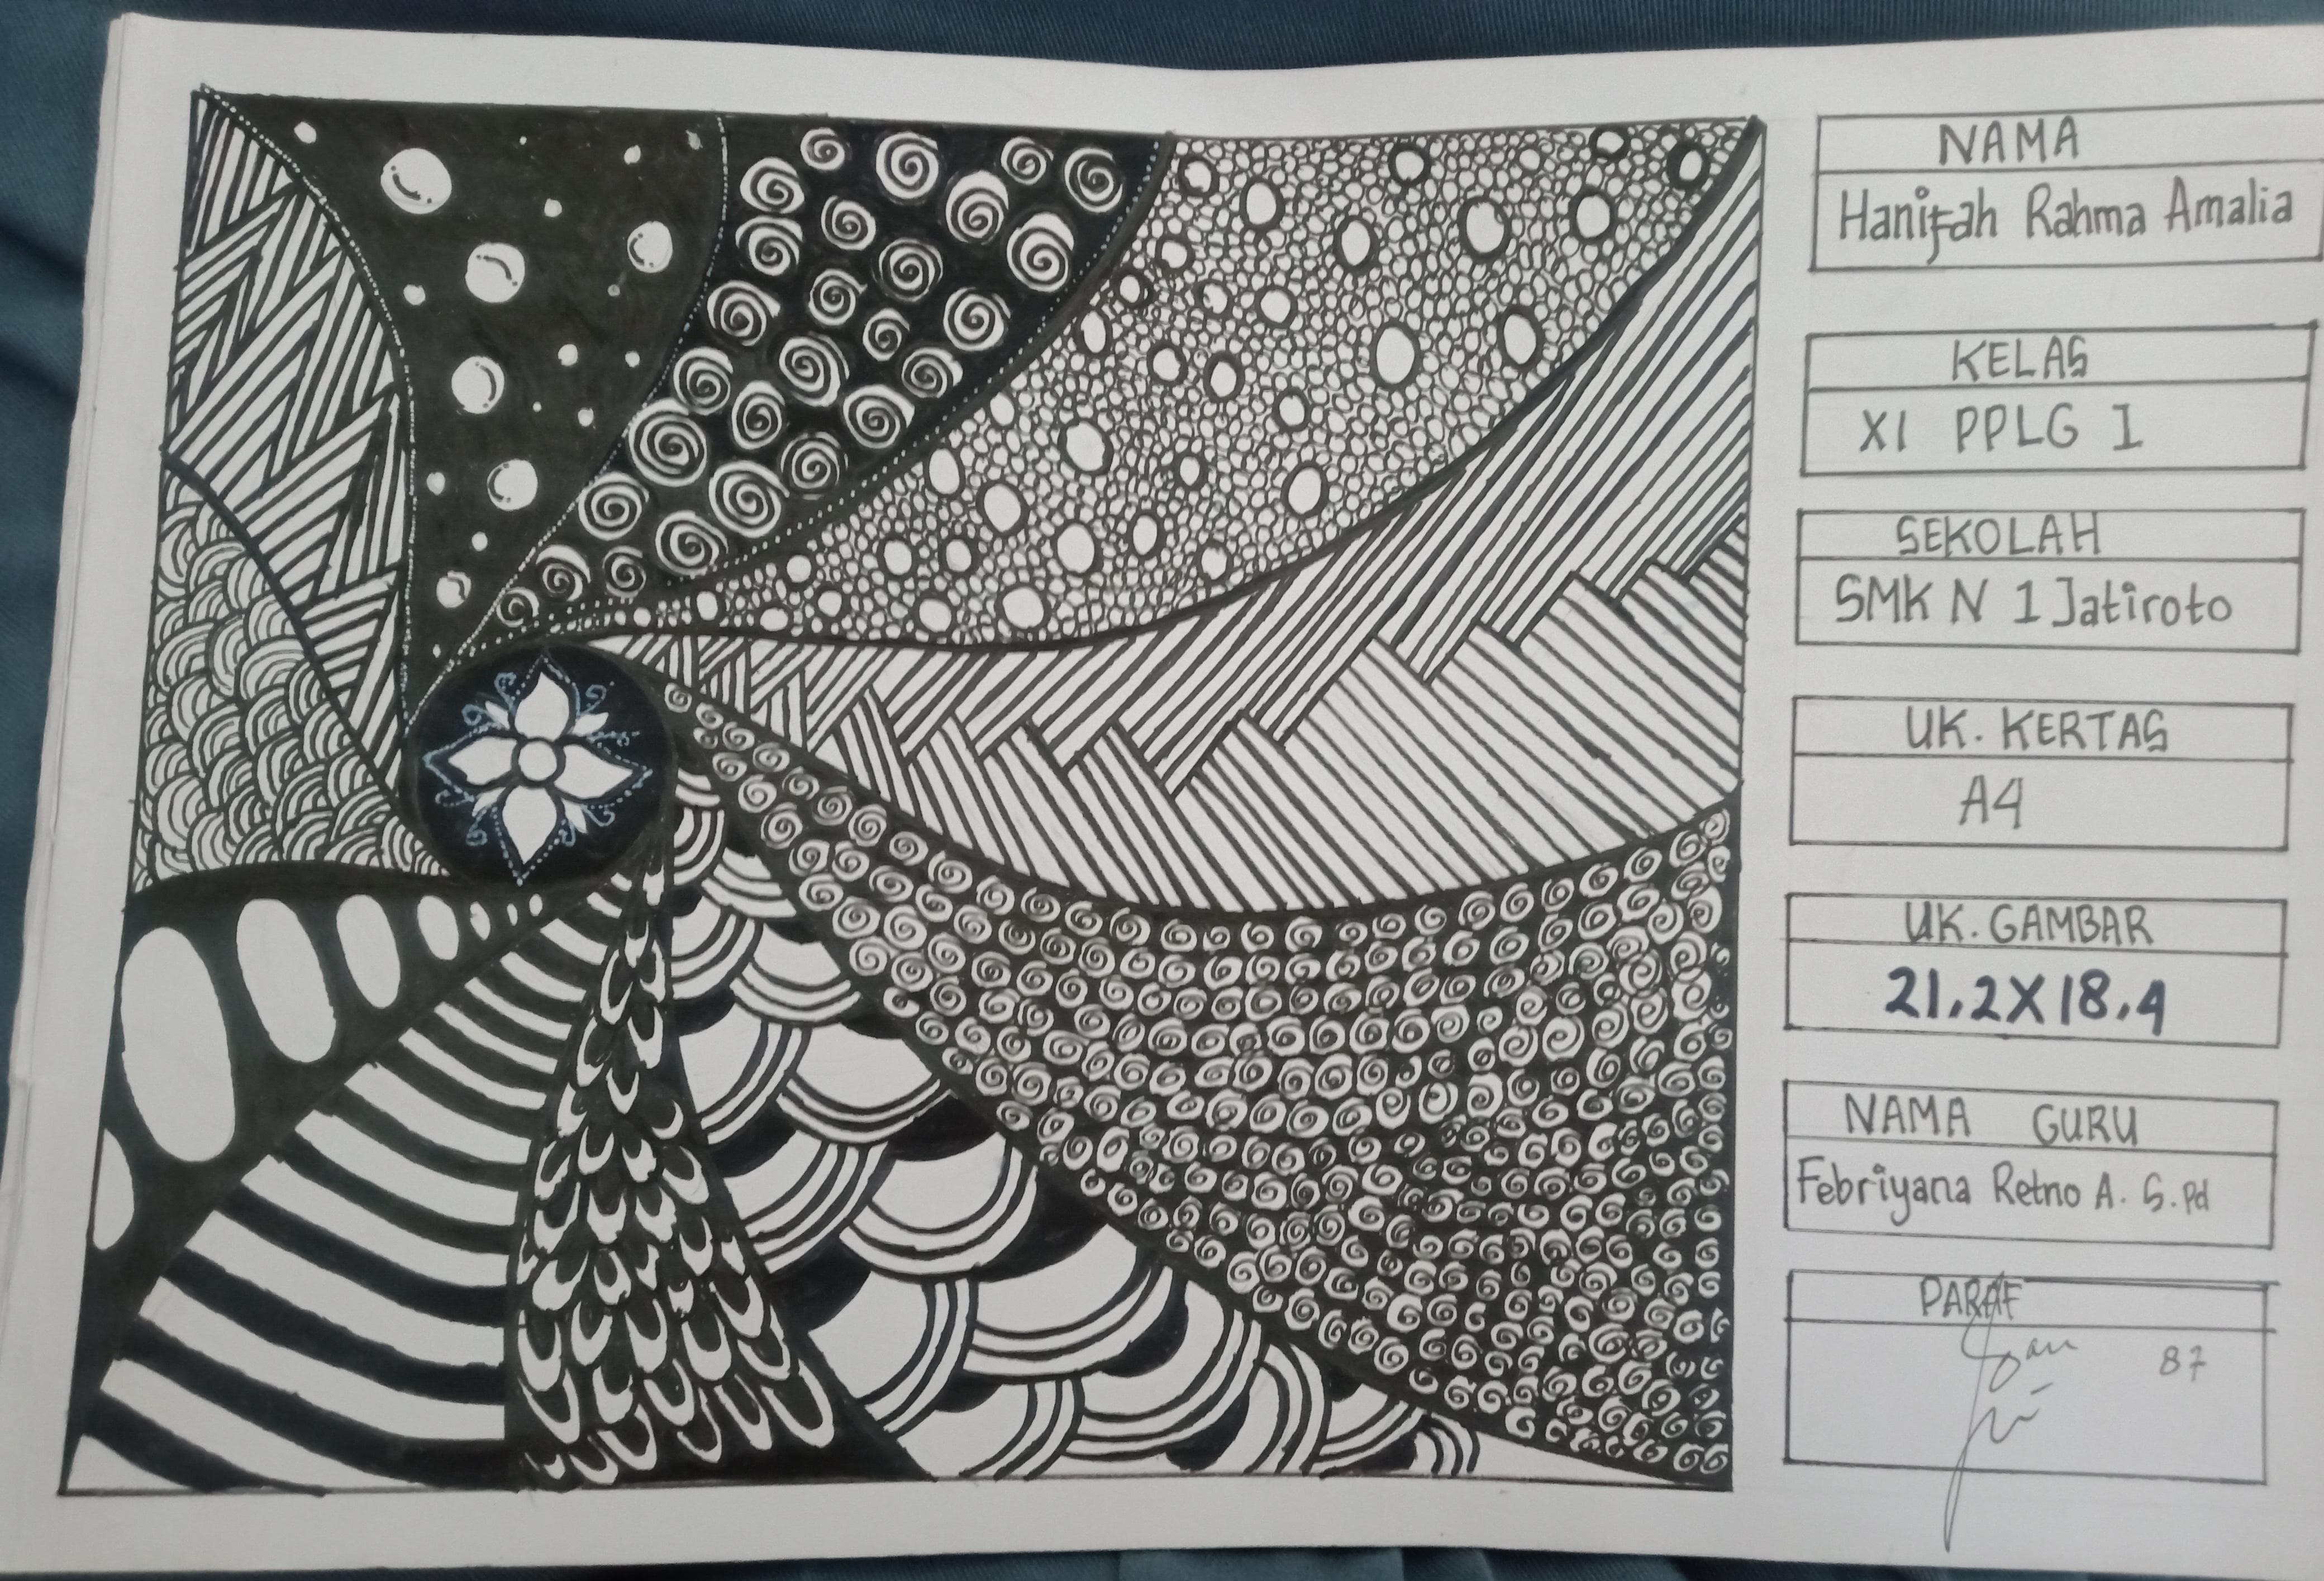 NAMA
Hanifah Rahma Amalia
KELAS
XI PPLG I
SEKOLAH
SMK N 1 Jatiroto
UK. KERTAS
A4
UK. GAMBAR
21,2X18,4
NAMA GURU
Febriyana Retno A. S.Pd
PARAF
87